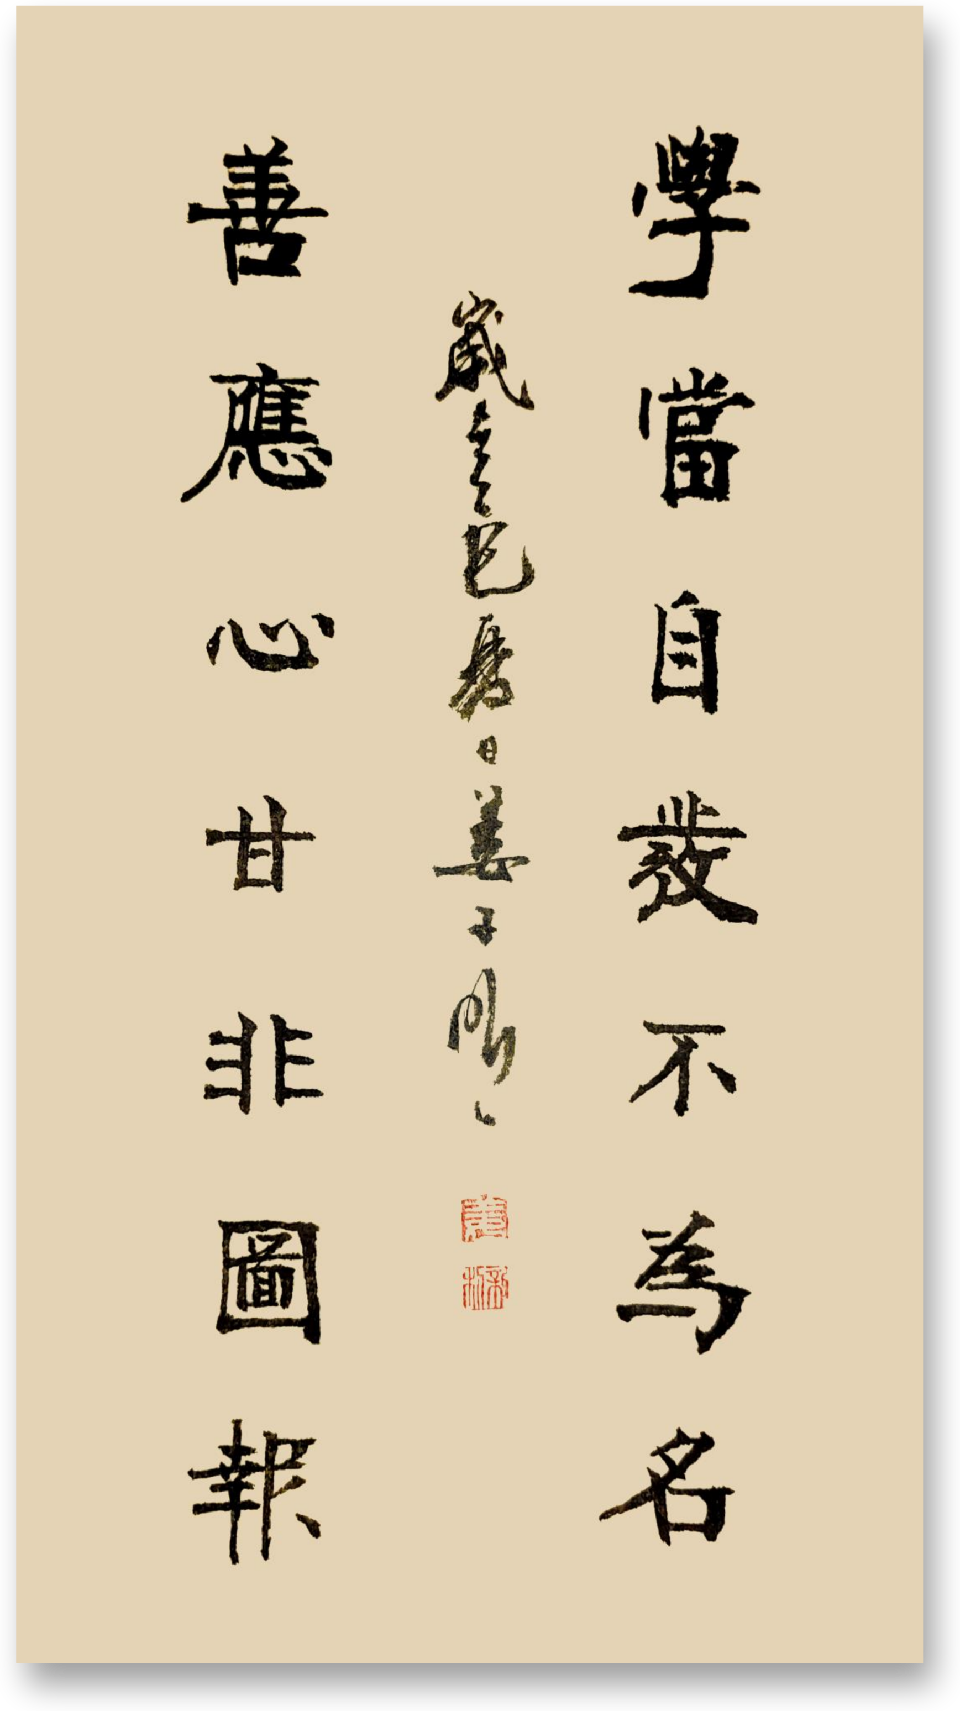 學當自發不為名
歲在乙巳春日姜子
善應心甘非圖報